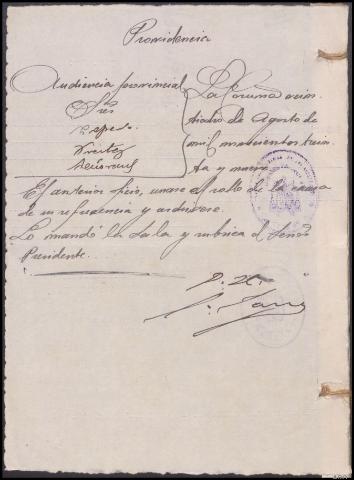 Providencia
Audiencia provincial
Sres
La Coruña vein-
ticuatro de Agosto de
mil novecientos trein-
ta y nueve
El anterior oficio, unase al rollo de la causa
de su referencia y archivese.
Lo mandó la Sala y rubrica el Señor
Presidente.